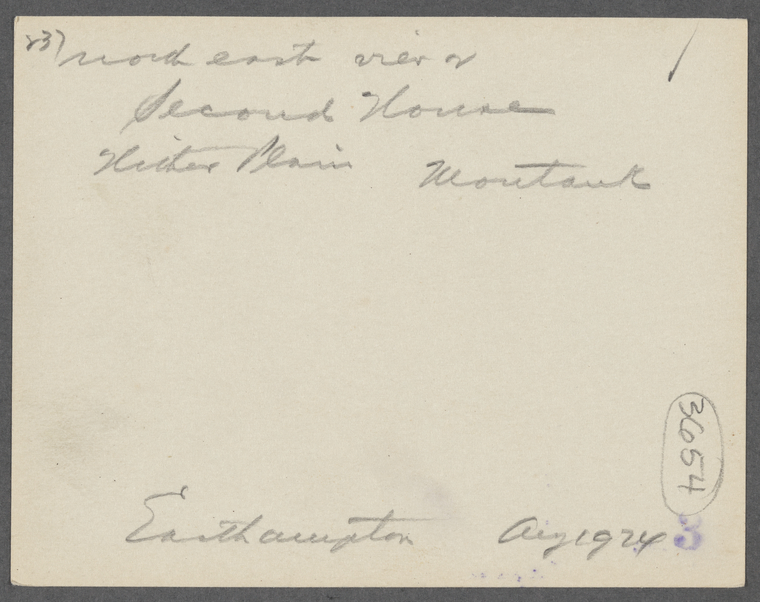 23) north east view of
Second House
Hither Plain Montauk
3654
Easthampton Aug 1924
3